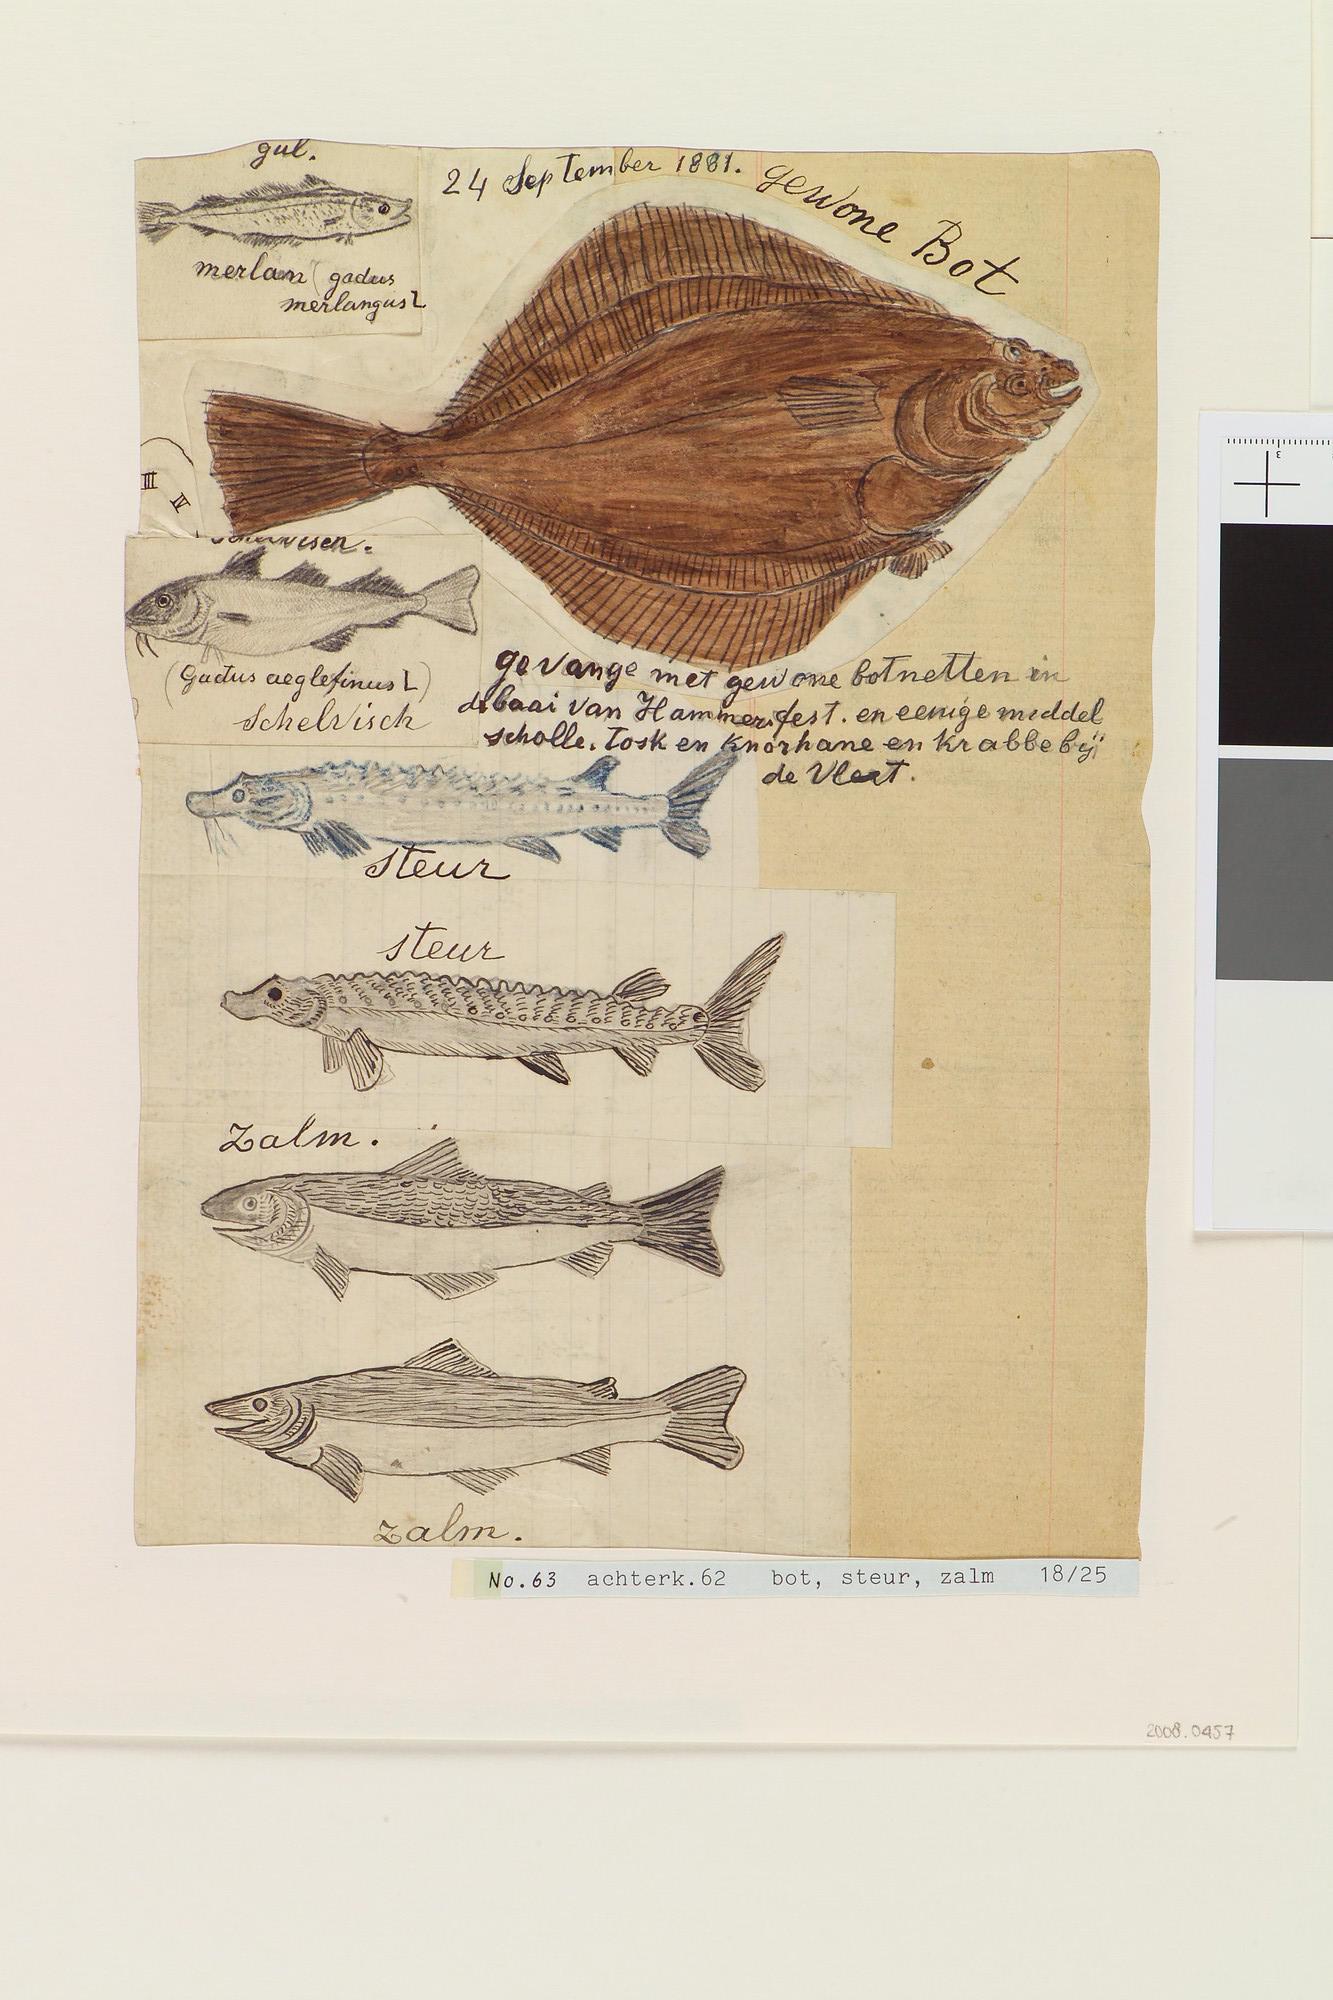 gul.
merlan (gadus
merlangus L
24 September 1881. gewone Bot
III
IV
(Gadus aeglefinus L)
Schelvisch
gevange met gewone botnetten in
de baai van Hammerfest. en eenige middel
scholle. Tosk en Knorhane en Krabbe bij
de Vleat.
steur
steur
Zalm.
zalm.
No.63 achterk.62 bot, steur, zalm 18/25
2008.0457